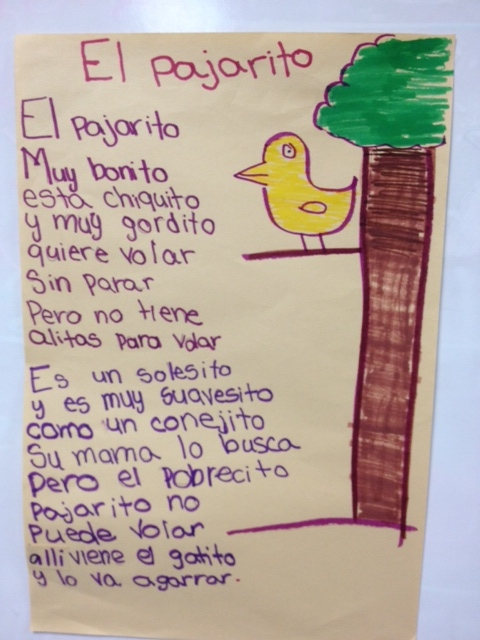 El pajarito
El pajarito
Muy bonito
esta chiquito
y muy gordito
quiere volar
Sin parar
Pero no tiene
alitas para volar
Es un solesito
y es muy suavesito
como un conejito
Su mama lo busca
Pero el Pobrecito
Pajarito no
Puede volar
alli viene el gatito
y lo va agarrar.